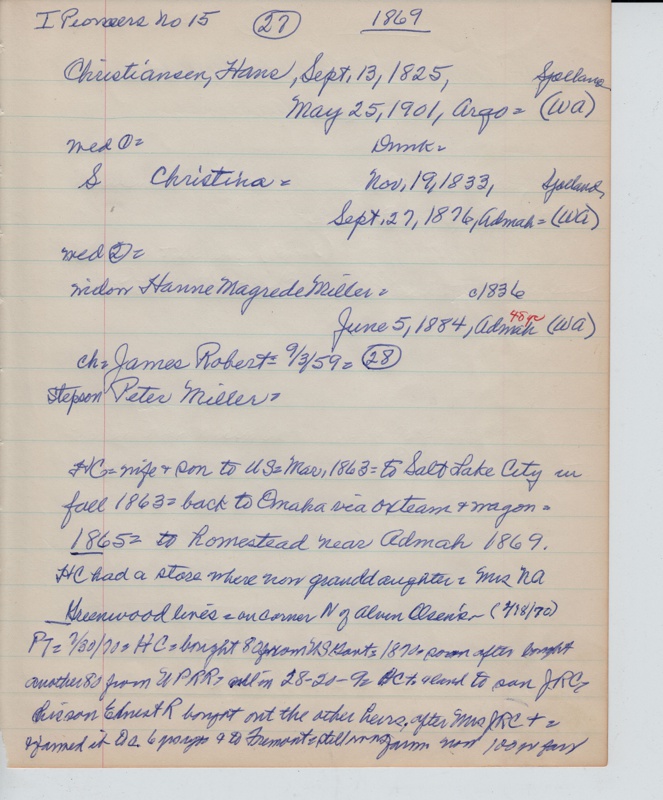 I Pioneers No 15 (27) 1869
Christiansen, Hans, Sept. 13, 1825, Sjelland
May 25, 1901, Argo = (WA)
med ① = Dmk =
S Christina = Nov, 19, 1833, Sjelland,
Sept. 27, 1876, Admah = (WA)
med ② =
widow Hanne Magrede Miller = c1836
48 yr
June 5, 1884, Admah (WA)
ch = James Robert = 9/3/59 = (28)
Stepson Peter Miller =
HC = wife + son to US = Mar, 1863 = to Salt Lake City in
fall 1863 = back to Omaha via oxteam + wagon =
1865 = to homestead near Admah 1869.
HC had a store where now granddaughter = Mrs NA
Greenwood lives = on corner N of Alvin Olsen's - (2/18/70)
PT = 7/30/70 = HC = bought 80 from US Govt = 1870 = soon after bought
another 80 from UPRR = all in 28-20-9 = HC + land to son JRC =
his son Ernest R bought out the other heirs, after Mrs JRC + =
+ farmed it to Fremont = still farm now 100 yr